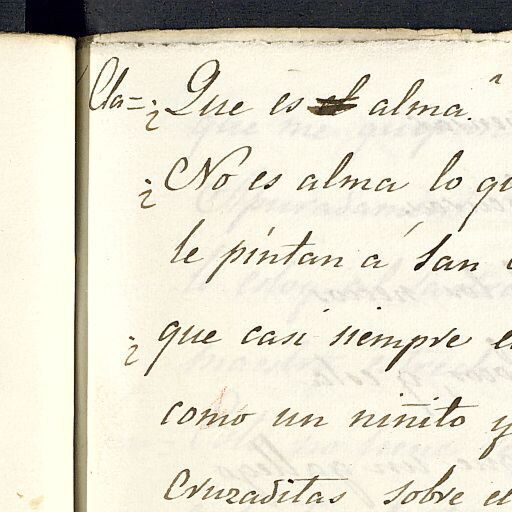 Cla= ¿Que es el alma?
¿No es alma lo qu
le pintan a san
¿que casi siempre e
como un niñito y
Cruzaditas sobre el